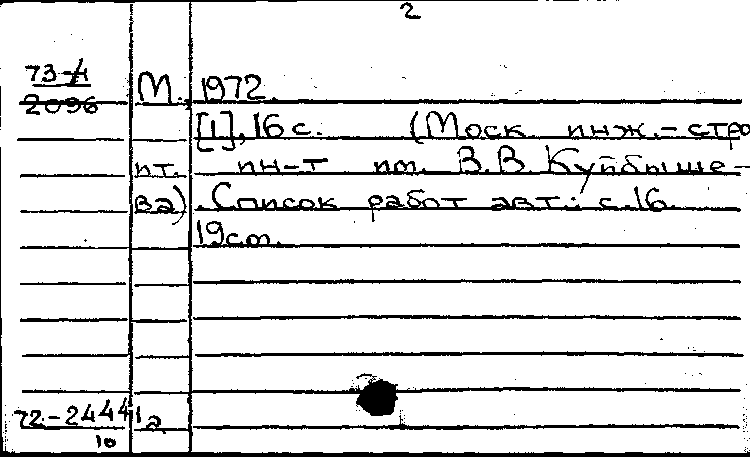 2
73-4
2096
М., 1972.
[1], 16 с. (Моск. инж.-стро
ит. ин-т им. В.В. Куйбыше-
ва). Список работ авт.: с. 16.
19 см.
72-24441а
10